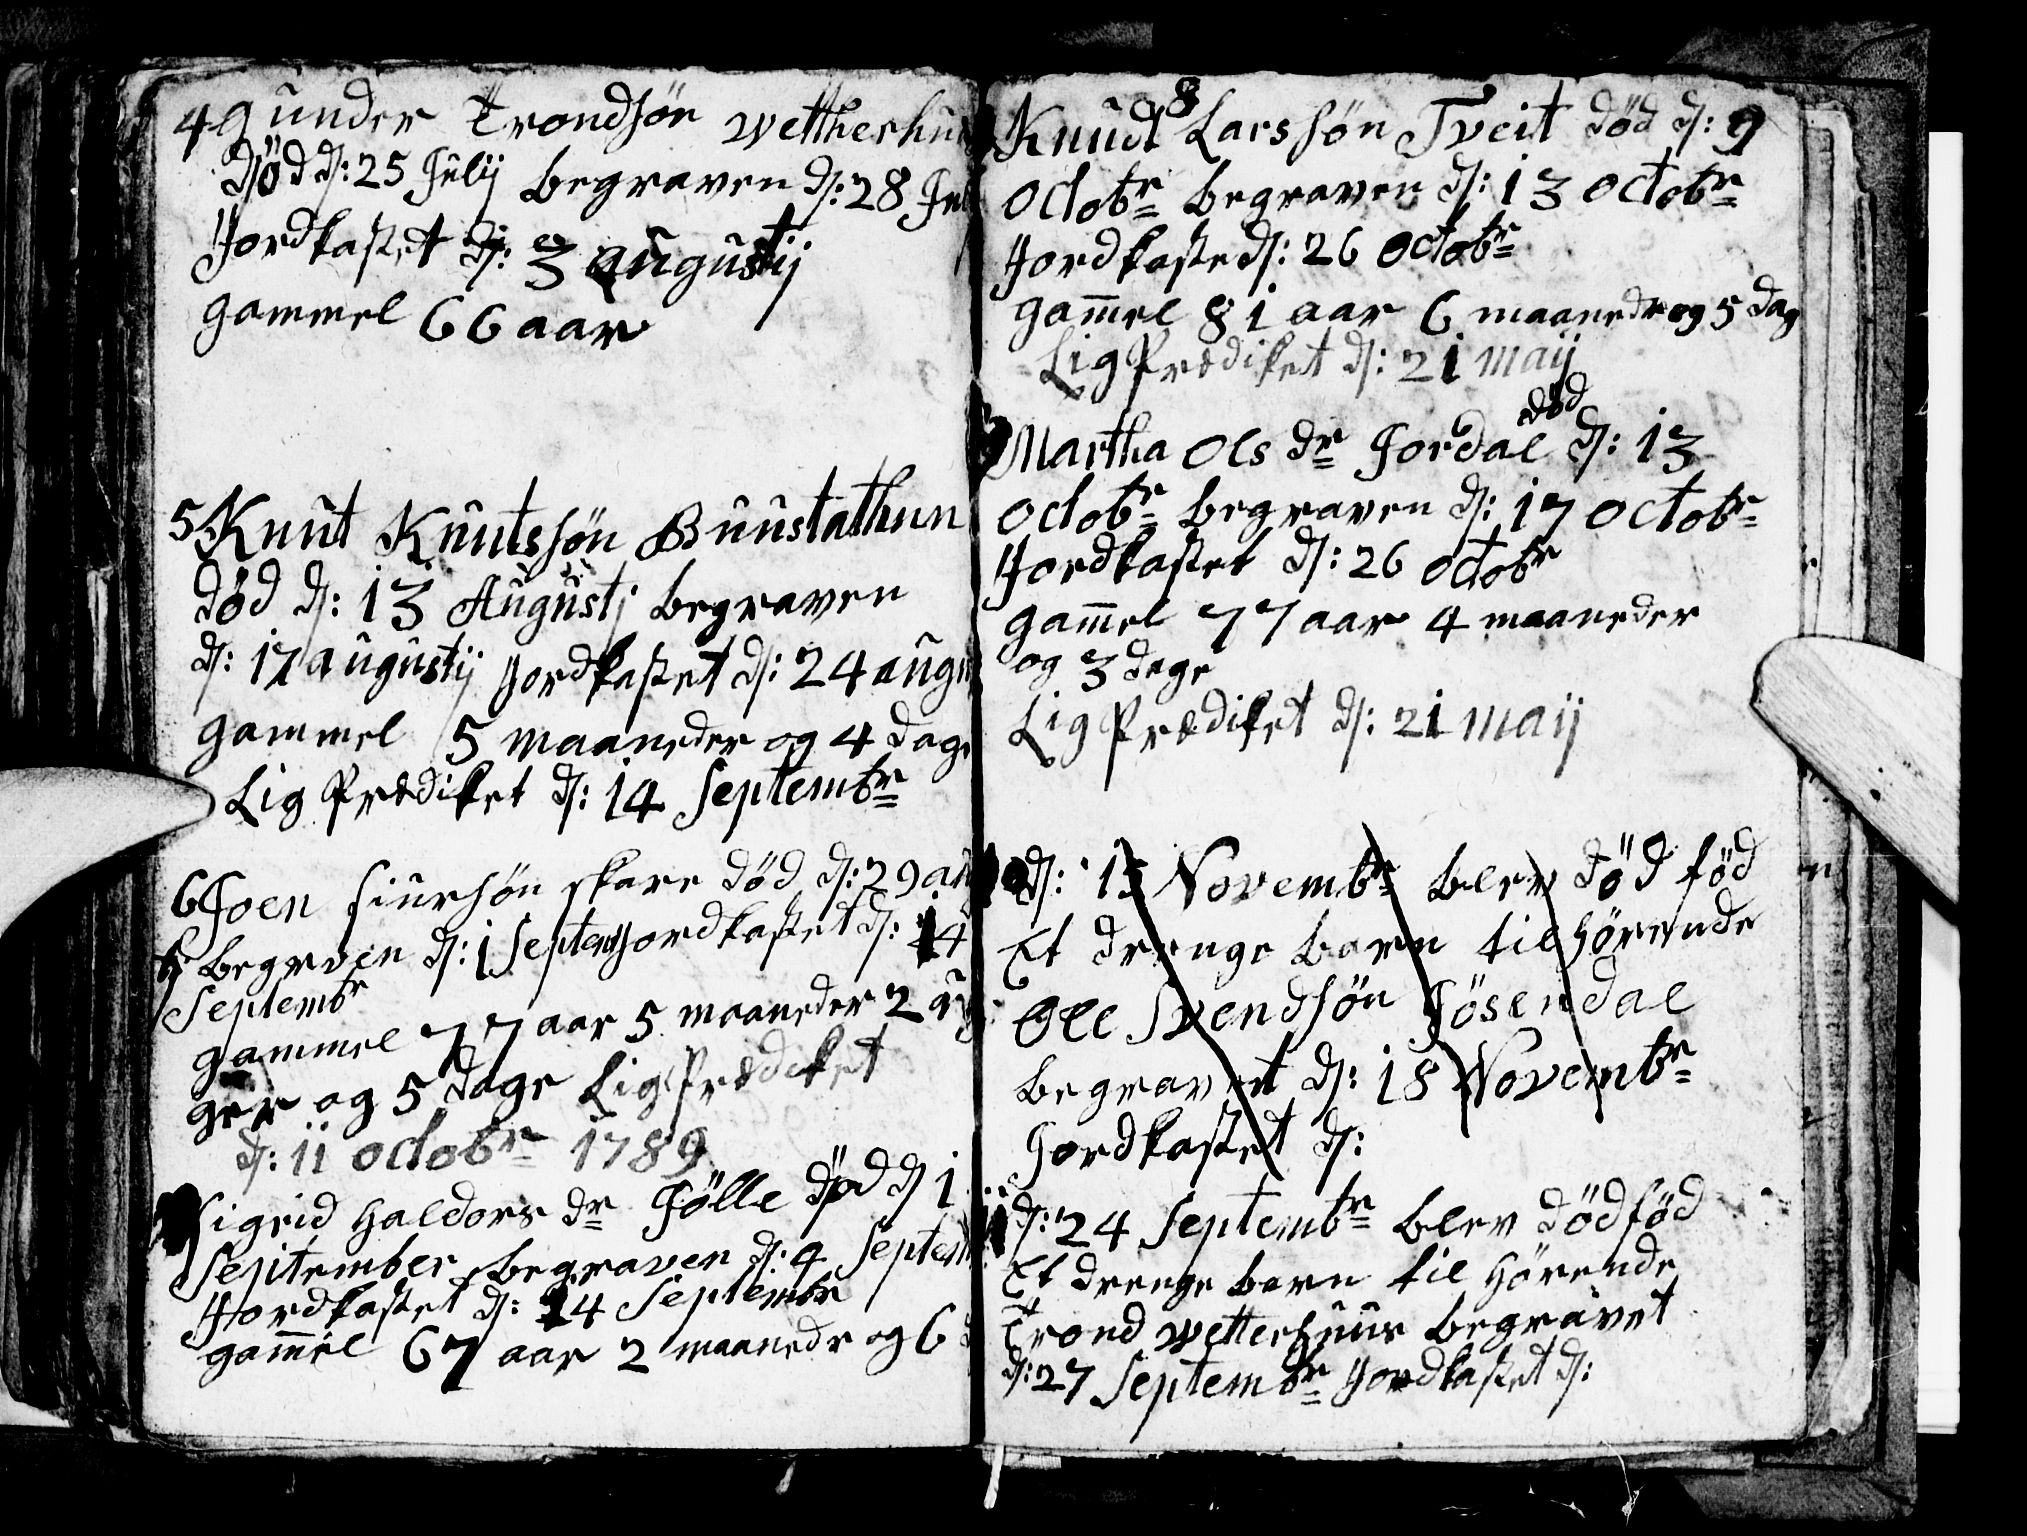 4 Gunder Trondsøn Wettherhuu
død d: 25 Julij begraven d: 28 Jul
Jordkastet d: 3 Augustij
gammel 66 aar
5 Knut Knutssøn Buustathun
død d: 13 Augustj begraven
d: 17 augustij Jordkastet d: 24 augu
gammel 5 maaneder og 4 dage
Lig Prædiket d: 14 Septembr
6 Joen Siursøn Skare død d: 29 au
begraven d: 1 Septem Jordkastet d: 14
Septembr
gammel 77 aar 5 maaneder 2 u
ger og 5 dage Lig Prædiket
d: 11 octobr 1789
Sigrid Haldors dr Jølle død d 1
September begraven d: 4 Septem
Jordkastet d: 14 Septembr
gam̄el 67 aar 2 maanedr og 6
8
Knudt Larssøn Tveit død d: 9
Octobr begraven d: 13 Octobr
Jordkaste d: 26 Octobr
gam̄el 81 aar 6 maanedr og 5 dag
Lig Prædiket d: 21 Maij
død
Martha Ols dr Jordal d: 13
Octobr begraven d: 17 Octobr
Jordkastet d: 26 Octobr
gam̄el 77 aar 4 maaneder
og 3 dage
Lig Prædiket d: 21 Maij
d: 15 Novembr blev død fød
Et drenge barn tilhørende
Ole Svendsøn Jøsendal
begravet d: 18 Novembr
Jordkastet d:
d: 24 Septembr blev dødfød
Et drenge barn til hørende
Trond Wetterhuus begravet
d: 27 Septembr Jordkastet d: